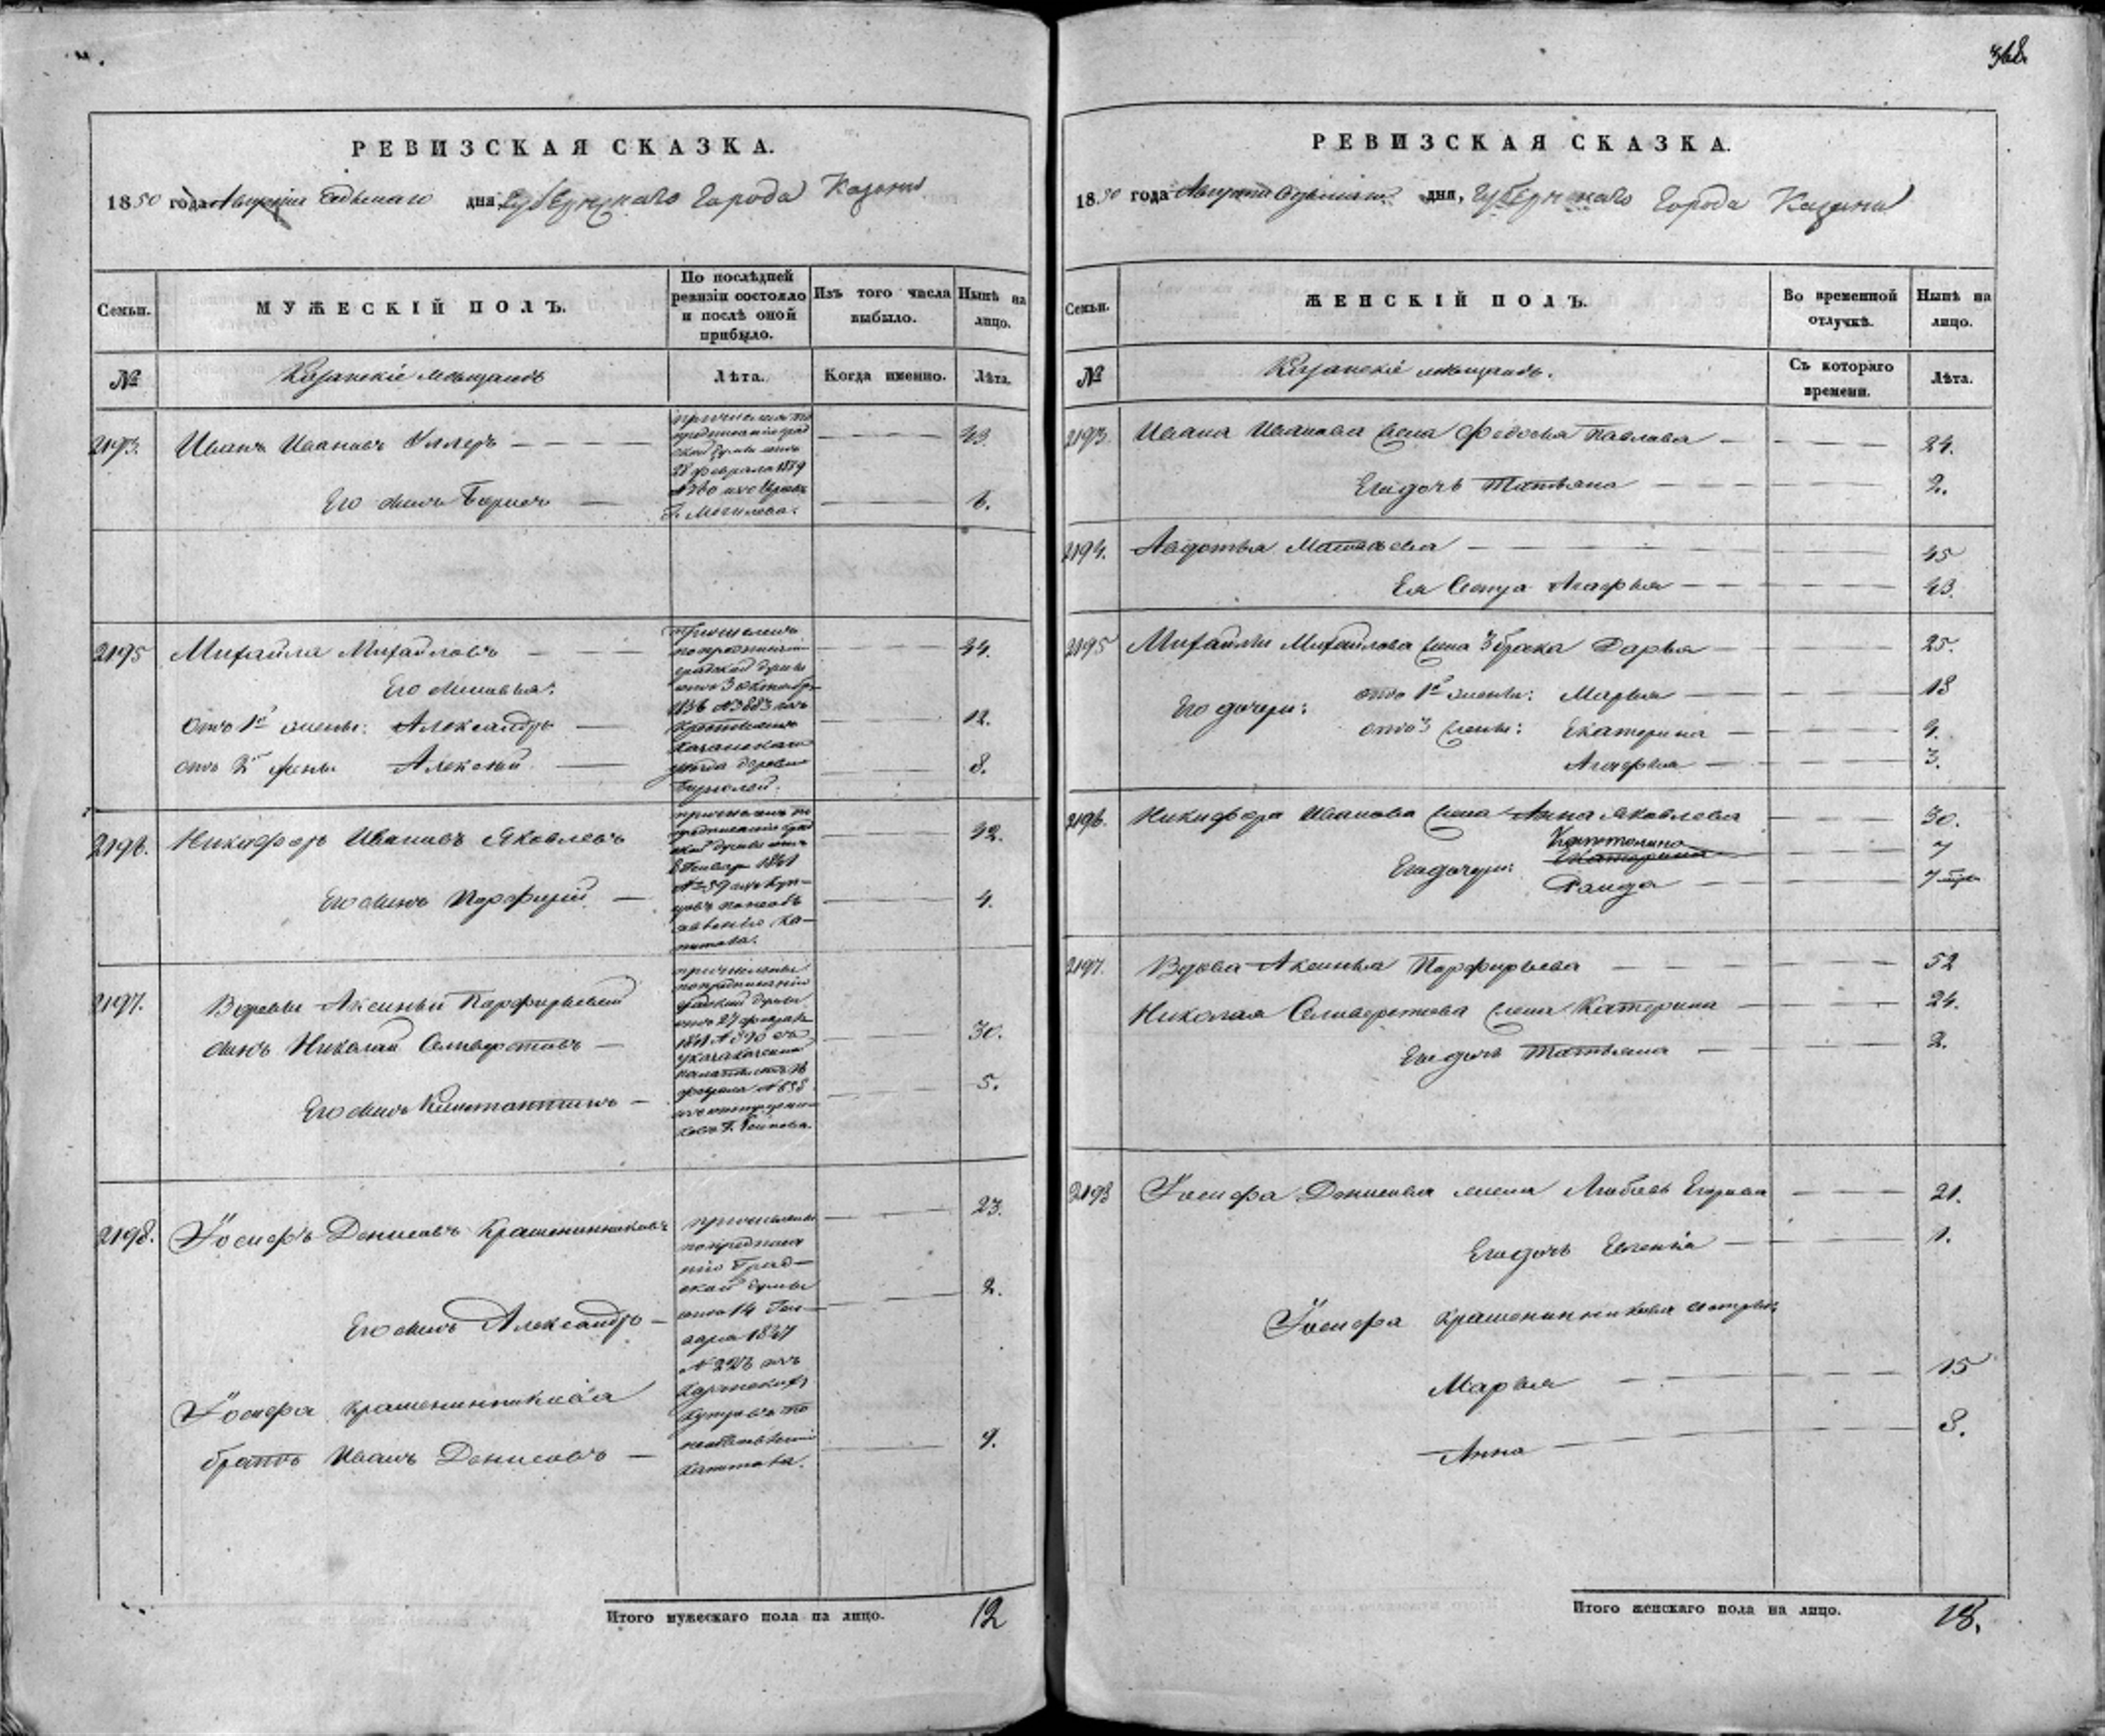 РЕВИЗСКАЯ СКАЗКА.
1850 года Августа седьмаго дня Губернскаго Города Казани
Семьи.
МУЖЕСКІЙ ПОЛЪ.
По послѣдней ревизіи состояло и послѣ оной прибыло.
Изъ того числа выбыло.
Нынѣ на лицо.
№
Казанскіе мещанѣ
Лѣта.
Когда именно.
Лѣта.
2193. Иванъ Ивановъ
43.
причисленъ по
предписанію град
ской думы отъ
28 февраля 1839
№ 760 изъ
Г. Могилева.
Его сынъ Борисъ
6.
2195 Михайла Михайловъ
44.
причисленъ
по предписанію
градской думы
отъ 3 октября
1836 № 3883 изъ
крестьянъ
Казанскаго
уѣзда деревни
Его сыновья:
отъ 1й жены: Александръ
12.
отъ 2й жены Алексей
8.
2196. Никифоръ Ивановъ Яковлевъ
32.
причисленъ по
предписанію град
ской думы отъ
8 Генваря 1841
№ 59 изъ Куп-
цовъ по необъ
явленію Ка-
питала.
Его сынъ Порфирій
4.
2197. Вдовы Аксиньи Парфирьевой
сынъ Николай Селиверстовъ
30.
причислены
по предписанію
градской думы
отъ 27 февраля
1841 № 590
указа казенной
палаты отъ
февраля № 638
Его сынъ Константинъ
5.
2198. Іосифъ Денисовъ Крашенинниковъ
23.
причислены
по предписа
нію Град-
ской думы
отъ 14 Ген-
варя 1847
№ 226 изъ
Казанскихъ
Купцовъ по
необъявленію
Капитала.
Его сынъ Александръ
2.
Іосифа Крашенинникова
братъ Иванъ Денисовъ
9.
Итого мужескаго пола на лицо. 12
368.
РЕВИЗСКАЯ СКАЗКА.
1850 года Августа седьмаго дня, Губернскаго Города Казани
Семьи.
ЖЕНСКІЙ ПОЛЪ.
Во временной отлучкѣ.
Нынѣ на лицо.
№
Казанскіе мещанѣ.
Съ котораго времени.
Лѣта.
2193. Ивана Иванова жена Федосья Павлова 24.
Его дочь Татьяна 2.
2194. Авдотья Матвѣева 45
Ея Сестра Агафья 43.
2195 Михайлы Михайлова жена 3 брака Дарья 25.
Его дочери: отъ 1й жены: Марья 18
отъ 3 жены: Екатерина 9.
Агафья 3.
2196. Никифора Иванова жена Анна Яковлева 30.
Капитолина
Его дочери: Екатерина 7
Раида
2197. Вдова Аксинья Парфирьева 52
Николая Селиверстова жена Катерина 24.
Его дочь Татьяна 2.
2198 Іосифа Денисова жена Любовь Егорова 21.
Его дочь Евгенія 1.
Іосифа Крашенинникова сестры
Марья 15
Анна 8.
Итого женскаго пола на лицо. 18.